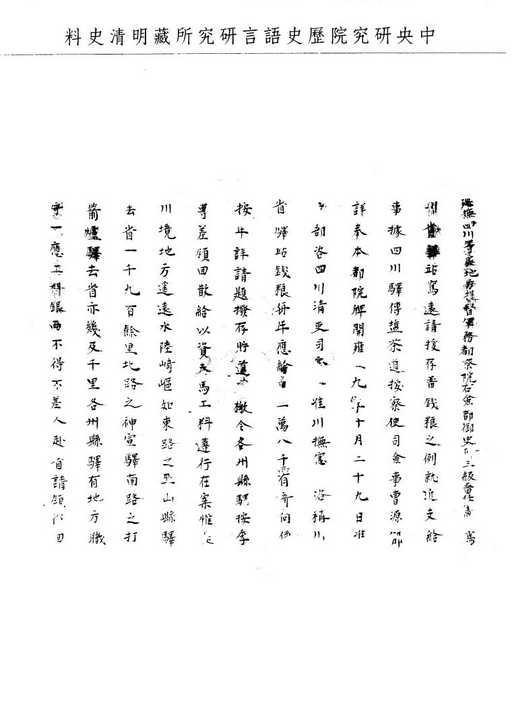 中央研究院歷史語言研究所藏明清史料
巡撫四川等處地方提督軍務都察院右僉都御史 三級 為
站寫遠請援存畱錢糧之例就近支給
事據四川驛傳鹽茶道按察使司僉事曹源
詳奉本都院牌開雍 九年十月二十九日准
部咨四川清吏司 准川撫憲 咨稱川
省驛站錢糧每年應 一萬八千 有奇向係
按年詳請題撥存貯 檄令各州縣驛按季
專差領回散給以資夫馬工料遵行在案惟
川境地方遼遠水陸崎嶇如東路之巫山縣驛
去省一千九百餘里北路之神宣驛南路之打
箭爐驛去省亦幾及千里各州縣驛有地方職
守一應工料銀兩不得不差人赴省請領 回